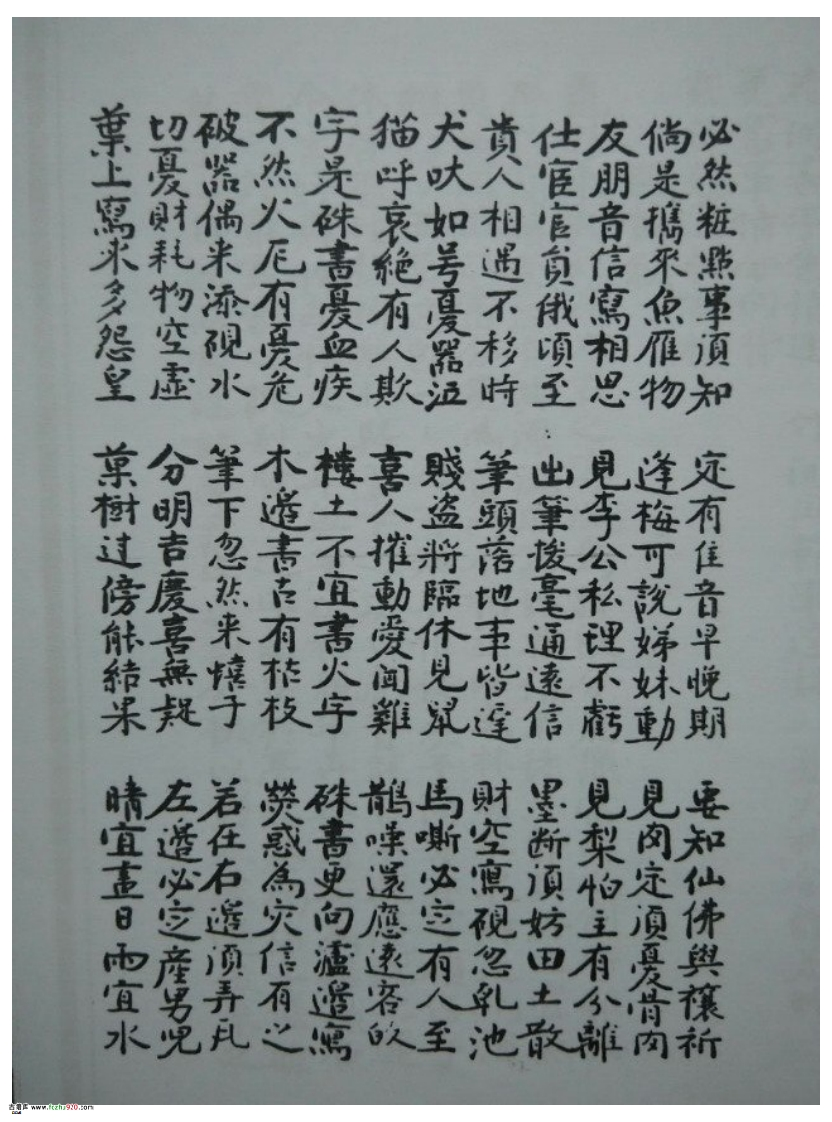 必然粧點事須知
倘是攜來魚雁物
友朋音信寫相思
仕宦官員俄頃至
貴人相遇不移時
犬吠如号憂器泣
猫呼哀絶有人欺
字是硃書憂血疾
不然火厄有憂危
破器偶来添硯水
切憂財耗物空虛
葉上寫来多怨皇
定有佳音早晚期
逢梅可說娣妹動
見李公私理不虧
出筆拨毫通遠信
筆頭落地事皆遲
賤盗將臨休見鼠
喜人摧動愛聞雞
樓土不宜書火字
木邊書古有枯枝
筆下忽然来蟢子
分明吉慶喜無疑
菓樹过傍能結果
要知仙佛與禳祈
見肉定須憂骨肉
見梨怕主有分離
墨断須妨田土散
財空寫硯忽乳池
馬嘶必定有人至
鵲噪還應遠客的
硃書更向爐邊寫
熒惑為灾信有之
若在右邊須弄瓦
左邊必定產男兒
晴宜畫日雨宜水
古籍库 www.fczhu920.com